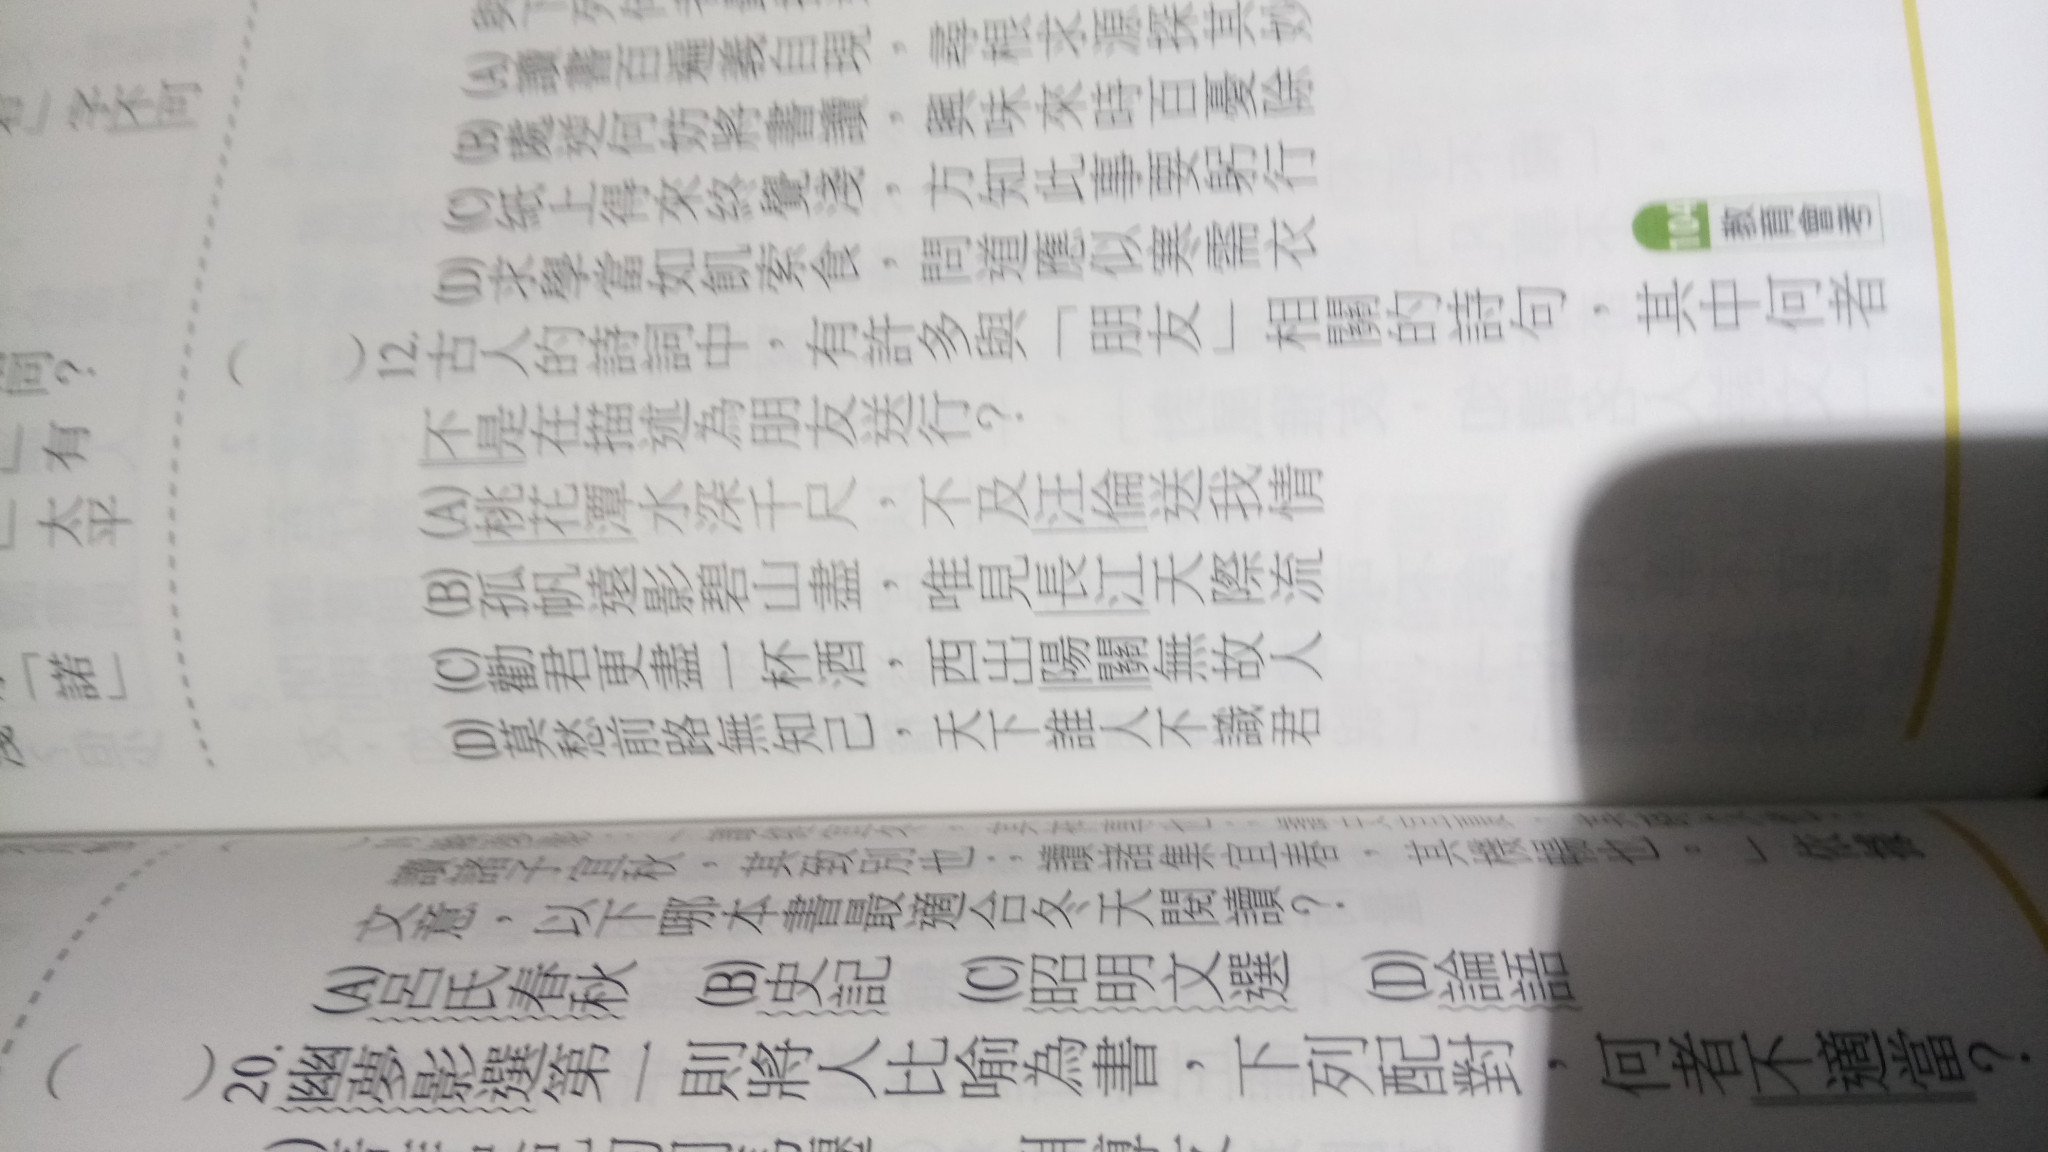 (A)讀書百遍義自現，尋根求源探其妙
(B)處逆何妨將書讀，興味來時百憂除
(C)紙上得來終覺淺，方知此事要躬行
(D)求學當如飢索食，問道應似寒需衣
104 教育會考
( )12.古人的詩詞中，有許多與「朋友」相關的詩句，其中何者
不是在描述為朋友送行？
(A)桃花潭水深千尺，不及汪倫送我情
(B)孤帆遠影碧山盡，唯見長江天際流
(C)勸君更盡一杯酒，西出陽關無故人
(D)莫愁前路無知己，天下誰人不識君
讀諸子宜秋，其致別也；讀諸集宜春，其機暢也。」依據
文意，以下哪本書最適合冬天閱讀？
(A)呂氏春秋 (B)史記 (C)昭明文選 (D)論語
( )20.幽夢影選第一則將人比喻為書，下列配對，何者不適當？
字不同
同？
有
太平
「諾」